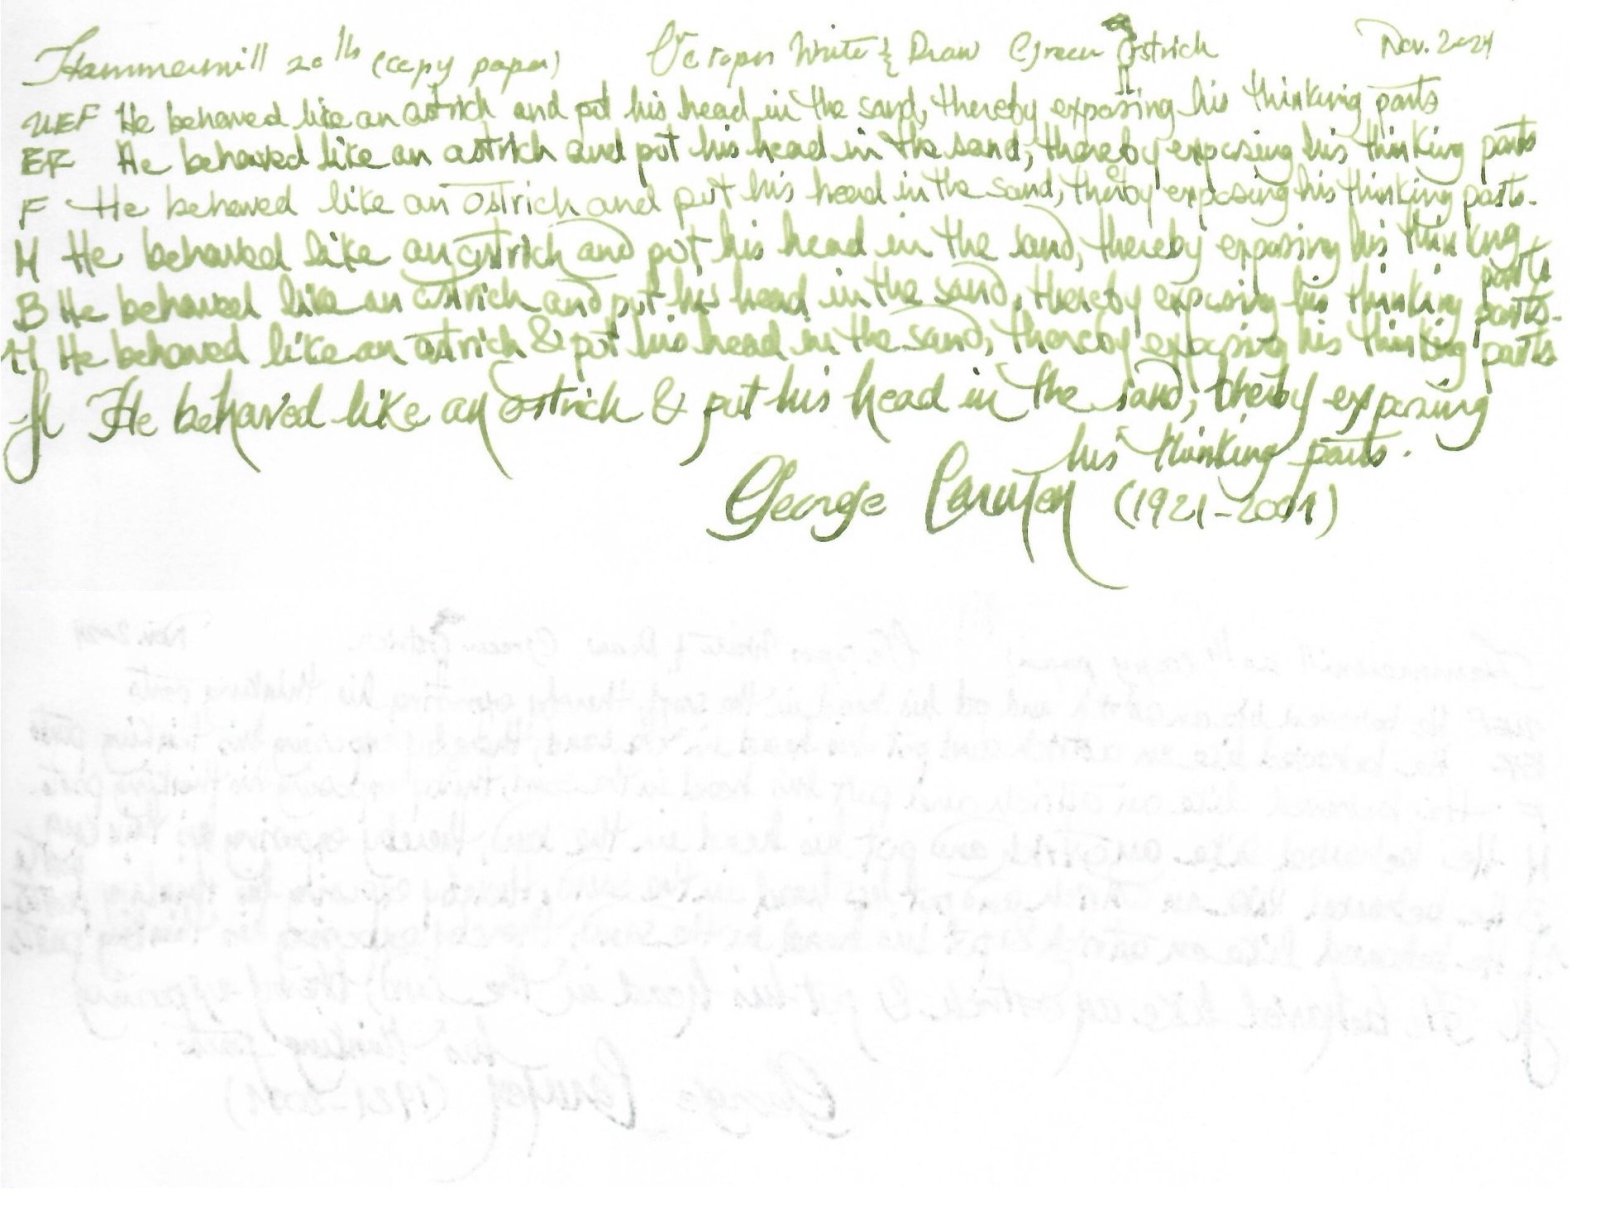 Hammermill 20 lb (copy paper) Octopus Write & Draw Green Ostrich Nov. 2024
UEF He behaved like an ostrich and put his head in the sand, thereby exposing his thinking parts
EF He behaved like an ostrich and put his head in the sand, thereby exposing his thinking parts
F He behaved like an ostrich and put his head in the sand, thereby exposing his thinking parts.
M He behaved like an ostrich and put his head in the sand, thereby exposing his thinking
parts
B He behaved like an ostrich and put his head in the sand, thereby exposing his thinking parts.
He behaved like an ostrich & put his head in the sand, thereby exposing his thinking parts
He behaved like an ostrich & put his head in the sand, thereby exposing
his thinking parts.
George (1921-2001)